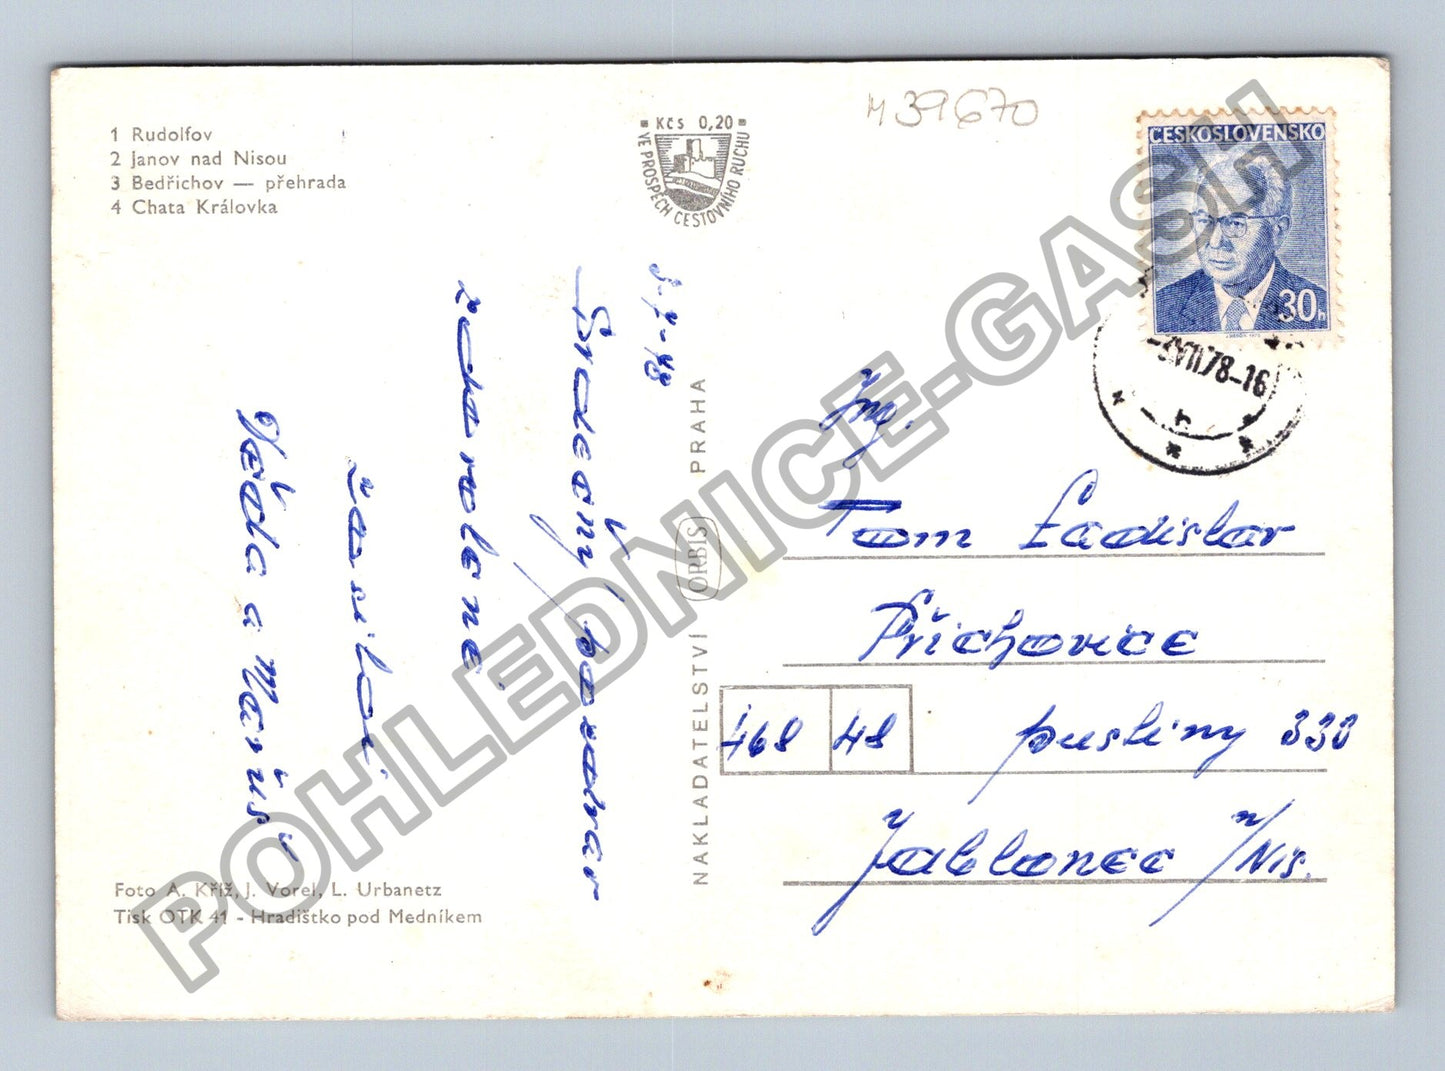 1 Rudolfov
2 Janov nad Nisou
3 Bedřichov — přehrada
4 Chata Královka
Kčs 0,20
VE PROSPĚCH CESTOVNÍHO RUCHU
M39670
ČESKOSLOVENSKO
30h
-3.VII.78-16
3-7-78
Srdečný pozdrav
z dovolené
zasílají
Věda a Maruš
NAKLADATELSTVÍ ORBIS PRAHA
Ing.
Tom Ladislav
Příchovice
468 48 pustiny 330
Jablonec n/Nis.
Foto A. Kříž, J. Vorel, L. Urbanetz
Tisk OTK 41 - Hradištko pod Medníkem
POHLEDNICE-GASH